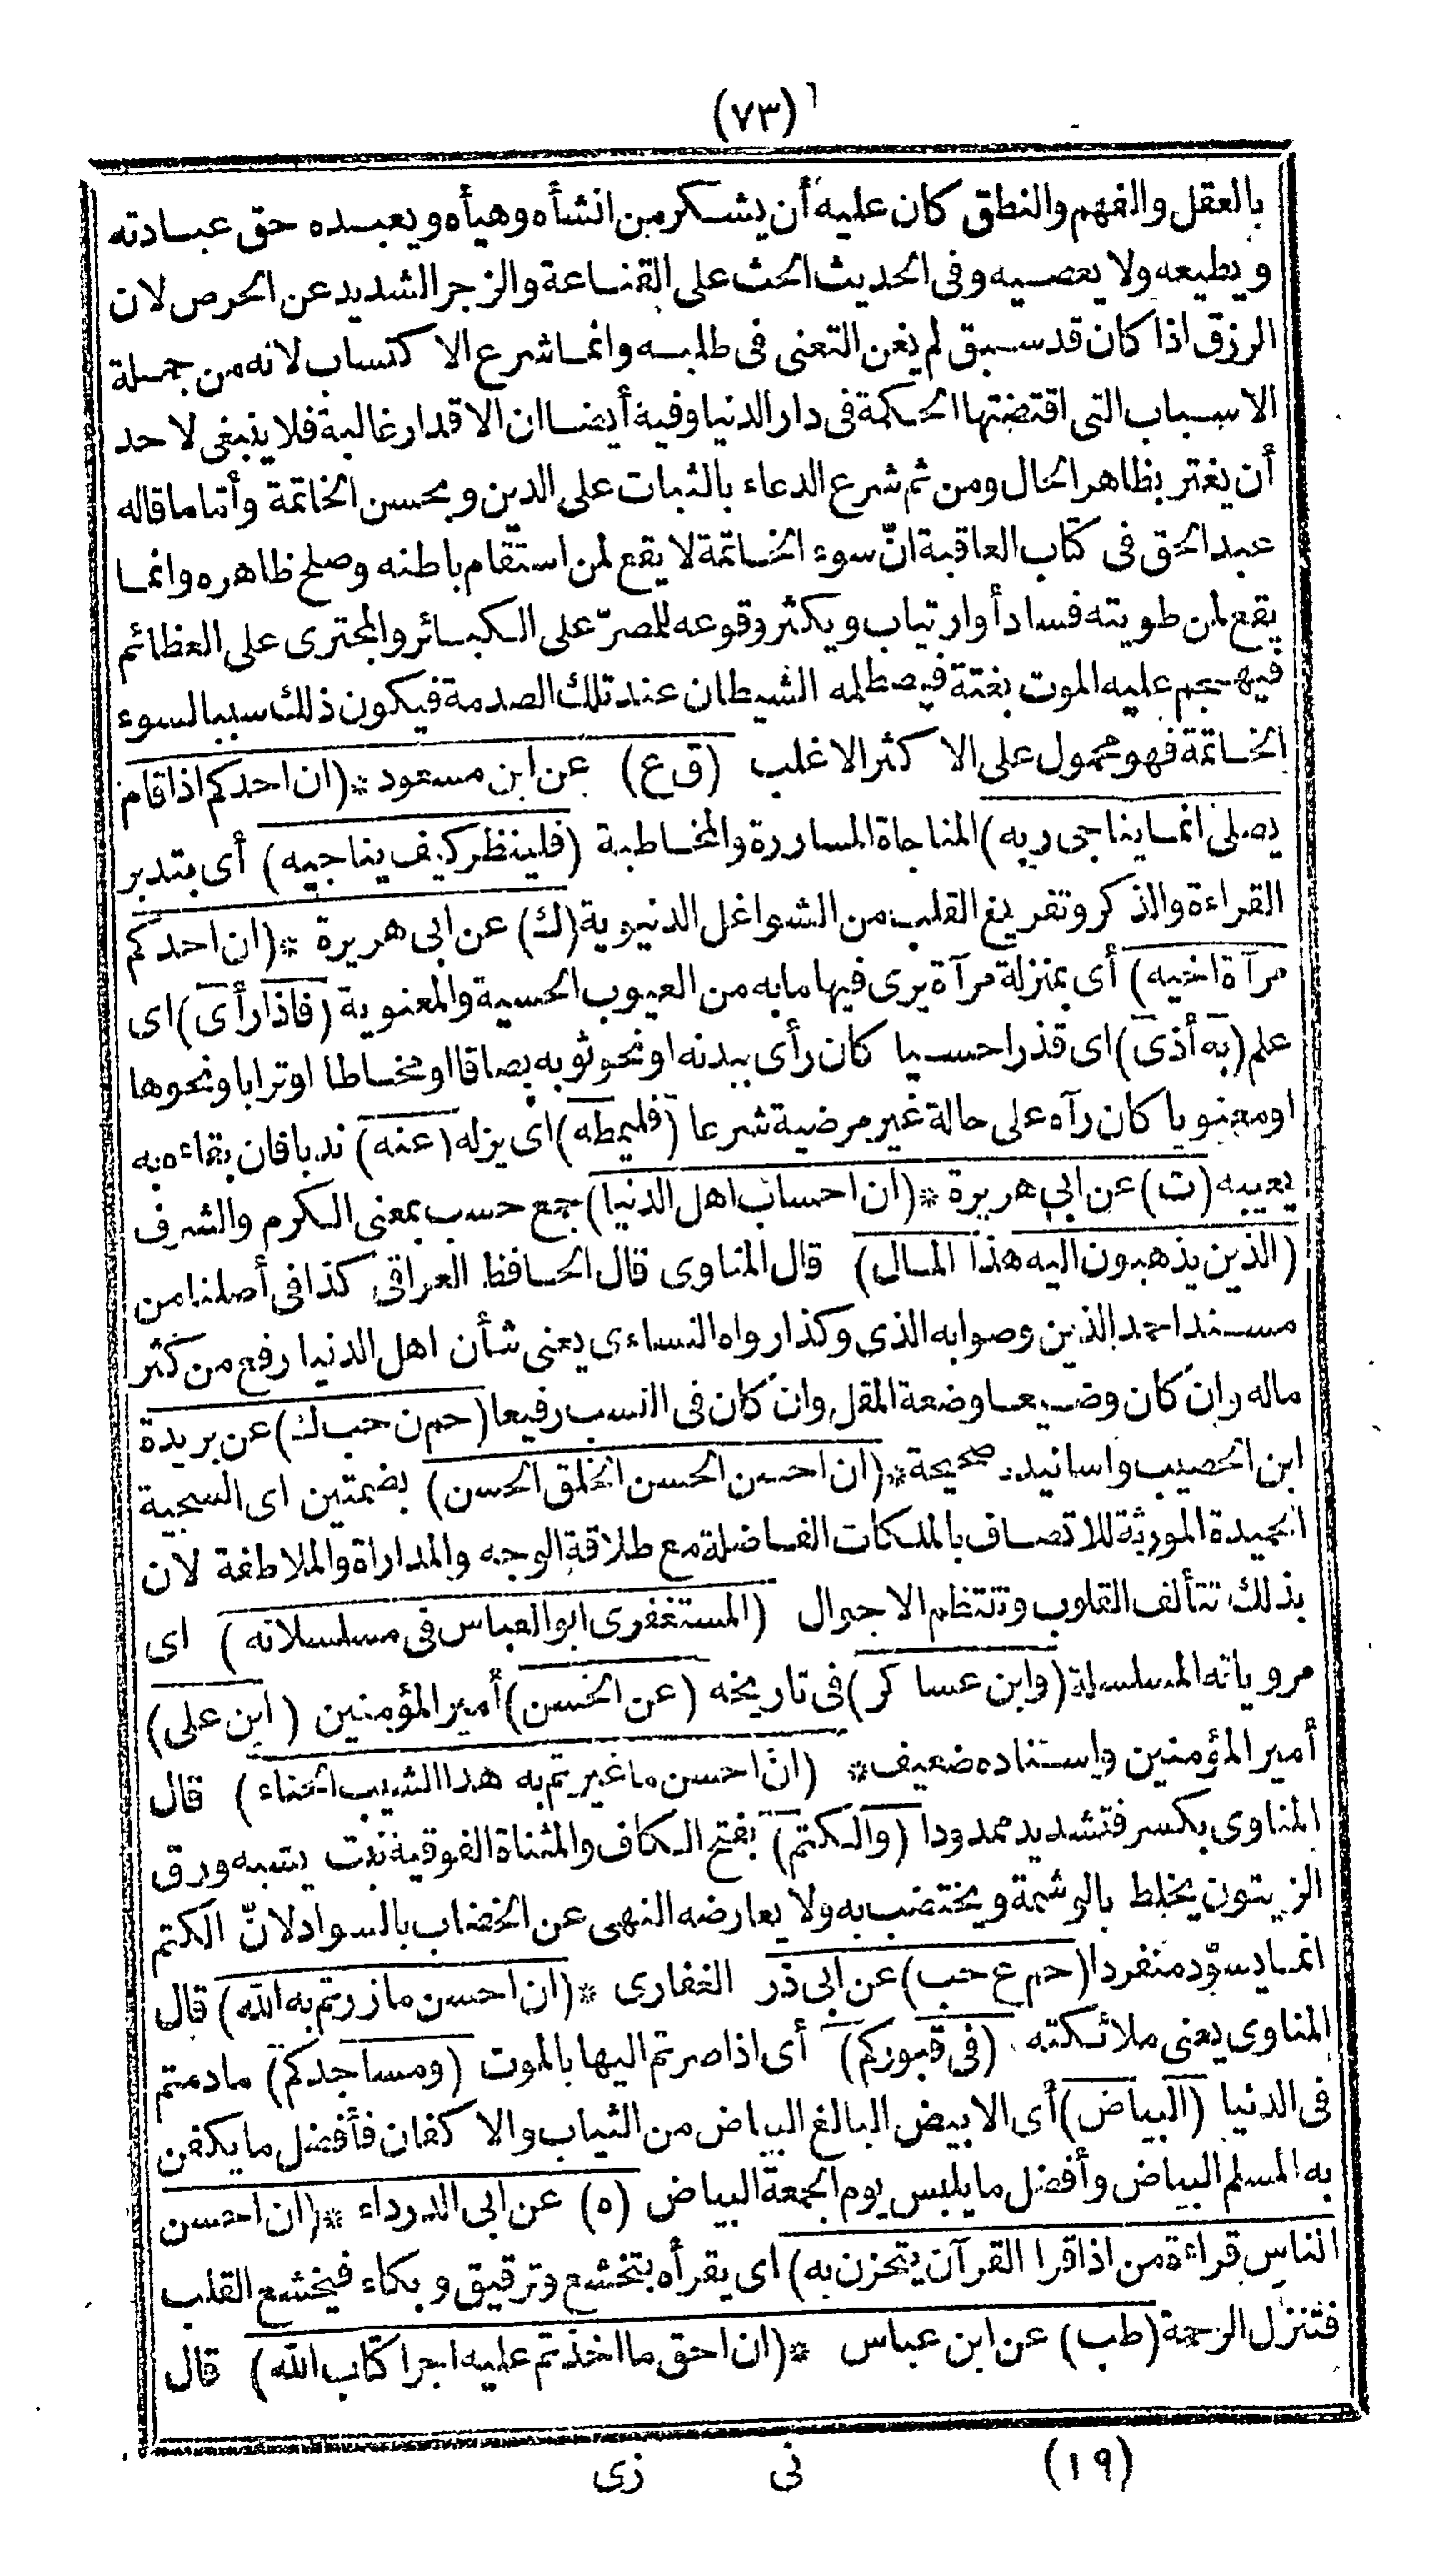 (٧٣)
بالعقل والفهم والنطق كان عليه أن يشكر من انشأه وهيأه ويعبده حق عبادته
ويطيعه ولا يعصيه وفى الحديث الحث على القناعة والزجر الشديد عن الحرص لان
الرزق اذا كان قد سبق لم يغن التعنى فى طلبه وانما شرع الاكتساب لانه من جملة
الاسباب التى اقتضتها الحكمة فى دار الدنيا وفيه أيضا ان الاقدار غالبة فلا ينبغى لاحد
أن يغتر بظاهر الحال ومن ثم شرع الدعاء بالثبات على الدين وبحسن الخاتمة وأما ما قاله
عبد الحق فى كتاب العاقبة انّ سوء الخاتمة لا يقع لمن استقام باطنه وصلح ظاهره وانما
يقع لمن طويته فساد أو ارتياب ويكثر وقوعه للمصرّ على الكبائر والمجترى على العظائم
فيهجم عليه الموت بغتة فيصطلمه الشيطان عند تلك الصدمة فيكون ذلك سببا لسوء
الخاتمة فهو محمول على الاكثر الاغلب (ق ع) عن ابن مسعود * (ان احدكم اذا قام
يصلى انما يناجى ربه) المناجاة المساررة والمخاطبة (فلينظر كيف يناجيه) أى بتدبر
القراءة والذكر وتفريغ القلب من الشواغل الدنيوية (ك) عن ابى هريرة * (ان احدكم
مرآة اخيه) أى بمنزلة مرآة يرى فيها ما به من العيوب الحسية والمعنوية (فاذا رأى) اى
علم (به أذى) اى قذرا حسيا كان رأى ببدنه او نحو ثوبه بصاقا او مخاطا او ترابا ونحوها
او معنويا كان رآه على حالة غير مرضية شرعا (فليمطه) اى يزله (عنه) ندبا فان بقاءه به
يعيبه (ت) عن ابى هريرة * (ان احساب اهل الدنيا) جمع حسب بمعنى الكرم والشرف
(الذين يذهبون اليه هذا المال) قال المناوى قال الحافظ العراقى كذا فى أصلنا من
مسند احمد الذين وصوابه الذى وكذا رواه النساءى يعنى شأن اهل الدنيا رفع من كثر
ماله وان كان وضيعا وضعة المقل وان كان فى النسب رفيعا (حم ن حب ك) عن بريدة
ابن الحصيب واسانيده صحيحة * (ان احسن الحسن الخلق الحسن) بضمتين اى السجية
الحميدة المورثة للاتصاف بالملكات الفاضلة مع طلاقة الوجه والمداراة والملاطفة لان
بذلك تتألف القلوب وتنتظم الاحوال (المستغفرى ابو العباس فى مسلسلاته) اى
مروياته المسلسلة (وابن عساكر) فى تاريخه (عن الحسن) أمير المؤمنين (ابن على)
أمير المؤمنين واستناده ضعيف * (انّ احسن ما غيرتم به هذا الشيب الحناء) قال
المناوى بكسر فتشديد ممدودا (والكتم) بفتح الكاف والمثناة الفوقية نبت يشبه ورق
الزيتون يخلط بالوشمة ويختضب به ولا يعارضه النهى عن الخضاب بالسواد لانّ الكتم
انما يسوّد منفردا (حم ع حب) عن ابى ذر الغفارى * (ان احسن ما زرتم به الله) قال
المناوى يعنى ملائكته (فى قبوركم) أى اذا صرتم اليها بالموت (ومساجدكم) مادمتم
فى الدنيا (البياض) أى الابيض البالغ البياض من الثياب والاكفان فأفضل ما يكفن
به المسلم البياض وأفضل ما يلبس يوم الجمعة البياض (ه) عن ابى الدرداء * (ان احسن
الناس قراءة من اذا قرا القرآن يتحزن به) اى يقرأه بتخشع وترقيق وبكاء فيخشع القلب
فتنزل الرحمة (طب) عن ابن عباس * (ان احق ما اخذتم عليه اجرا كتاب الله) قال
(١٩) نى زى